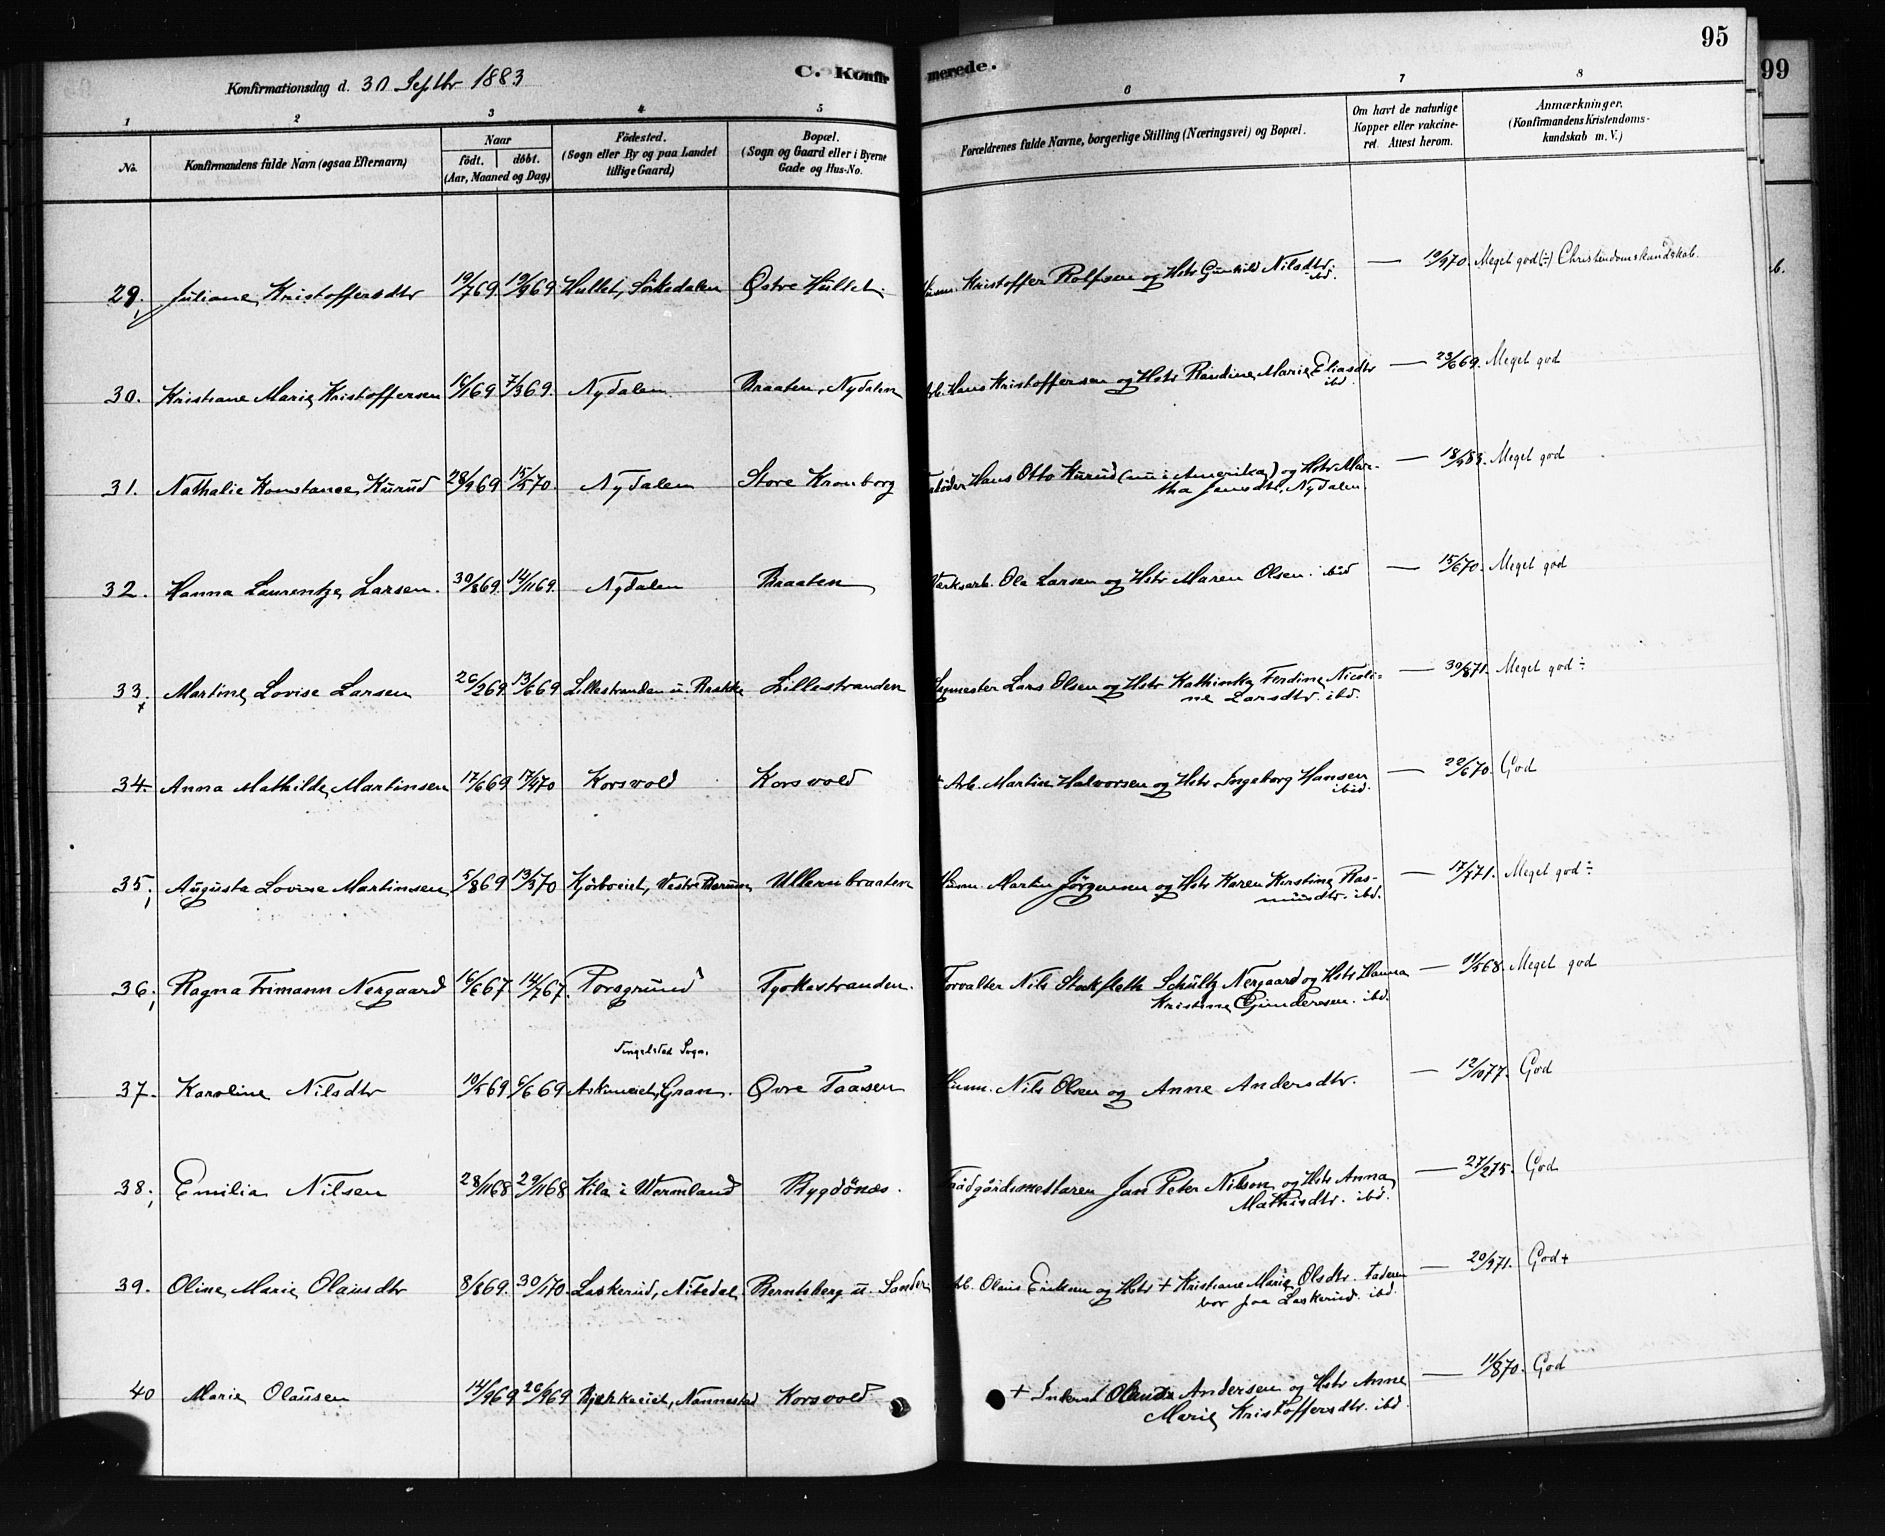 95
99
Konfirmationsdag d. 30 Septbr 1883
C. Konfir merede.
1 2 3 4 5 6 7 8
No. Konfirmandens fulde Navn (ogsaa Efternavn) Naar født. døbt. (Aar, Maaned og Dag) Fødested. (Sogn eller By og paa Landet tillige Gaard) Bopæl. (Sogn og Gaard eller i Byerne Gade og Hus-No. Forældrenes fulde Navne, borgerlige Stilling (Næringsvei) og Bopæl. Om havt de naturlige Kopper eller vakcine- ret. Attest herom. Anmærkninger. (Konfirmandens Kristendoms- kundskab m. V.)
29. Juliane Kristoffersdtr 19/769 19/969 Hullet, Sørkedalen Østre Hullet. Husm. Kristoffer Rolfsen og Hstr Gunhild Nilsdtr. — 19/970. Meget god (÷) Christendomskundskab.
ibd.
30. Kristiane Marie Kristoffersen 16/169 7/369. Nydalen Braaten, Nydalen Arb. Hans Kristoffersen og Hstr Randine Marie Eliasdtr — 23/669. Meget god
ibd.
31. Nathalie Konstance Kurud 28/969 15/570. Nydalen Store Kronborg Hans Otto Kurud (nu i Amerika) og Hstr Mar- — 18/983. Meget god
tha Jensdtr, Nydalen.
32. Hanna Laurentze Larsen. 30/869. 14/1169. Nydalen Braaten Værksarb. Ole Larsen og Hstr Maren Olsen. ibid — 15/670. Meget god
33. Martine Lovise Larsen 26/269. 13/669. Lillestranden u. Bakke Lillestranden Lars Olsen og Hstr Kathinka Ferdine Nicoli- — 30/871. Meget god ÷
ne Larsdtr. ibd.
34. Anna Mathilde Martinsen 17/669 17/470 Korsvold Korsvold + Arb. Martin Halvorsen og Hstr Ingeborg Hansen — 22/670. God
ibid.
35. Augusta Lovise Martinsen 5/869 13/370 Kjørboeiet, Vestre Bærum Ullernbraaten Husm. Martin Jørgensen og Hstr Karen Kirstine Ras- — 17/971. Meget god ÷
musdtr. ibd.
36. Ragna Frimann Nergaard 16/667 14/767. Porsgrund Tyskestranden. Forvalter Nils Stokfleth Schultz Nergaard og Hstr Hanna — 11/568. Meget god
Kristine Gundersen. ibd.
Tingelstad Sogn.
37. Karoline Nilsdtr 10/569 6/669 Askimeiet, Gran. Øvre Taasen Husm. Nils Olsen og Anne Andersdtr. — 12/1077. God
38. Emilia Nilsen 28/1168 29/1168 Kila i Wermland Bygdønæs. Trädgårdsmestaren Jan Peter Nilson og Hstr Anna — 27/275. God
Mathisdtr. ibd.
39. Oline Marie Olausdtr 8/869. 30/170. Laskerud, Nitedal Berntsberg u. Sander Arb. Olaus Eriksen og Hstr + Kristiane Marie Olsdtr. Faderen — 20/971. God +
bor paa Laskerud. ibd.
40 Marie Olausen 14/969 26/969 Bjerkeeiet, Nannestad Korsvold + Inderst Olaus Andersen og Hstr Anne — 11/870. God
Marie Kristoffersdtr. ibd.